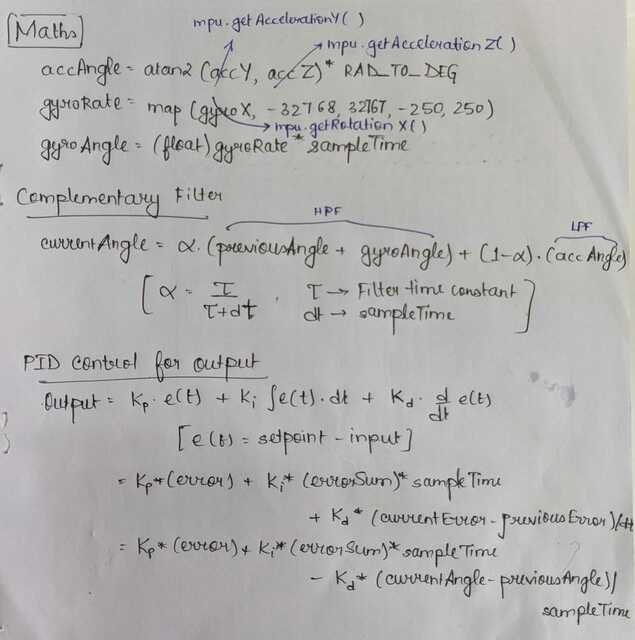 Maths
mpu.getAccelerationY()
mpu.getAccelerationZ()
accAngle = atan2 (accY, accZ)* RAD_TO_DEG
gyroRate = map (gyroX, -32768, 32767, -250, 250)
mpu.getRotationX()
gyroAngle = (float)gyroRate * sampleTime
Complementary Filter
HPF
LPF
currentAngle = α.(previousAngle + gyroAngle) + (1-α).(accAngle)
[α = τ/(τ+dt), τ → Filter time constant
dt → sampleTime]
PID control for output
Output = Kp. e(t) + Ki ∫e(t).dt + Kd. d/dt e(t)
[e(t) = setpoint - input]
= Kp*(error) + Ki*(errorSum)*sampleTime
+ Kd*(currentError-previousError)/dt
= Kp*(error)+Ki*(errorSum)*sampleTime
- Kd*(currentAngle-previousAngle)/
sampleTime